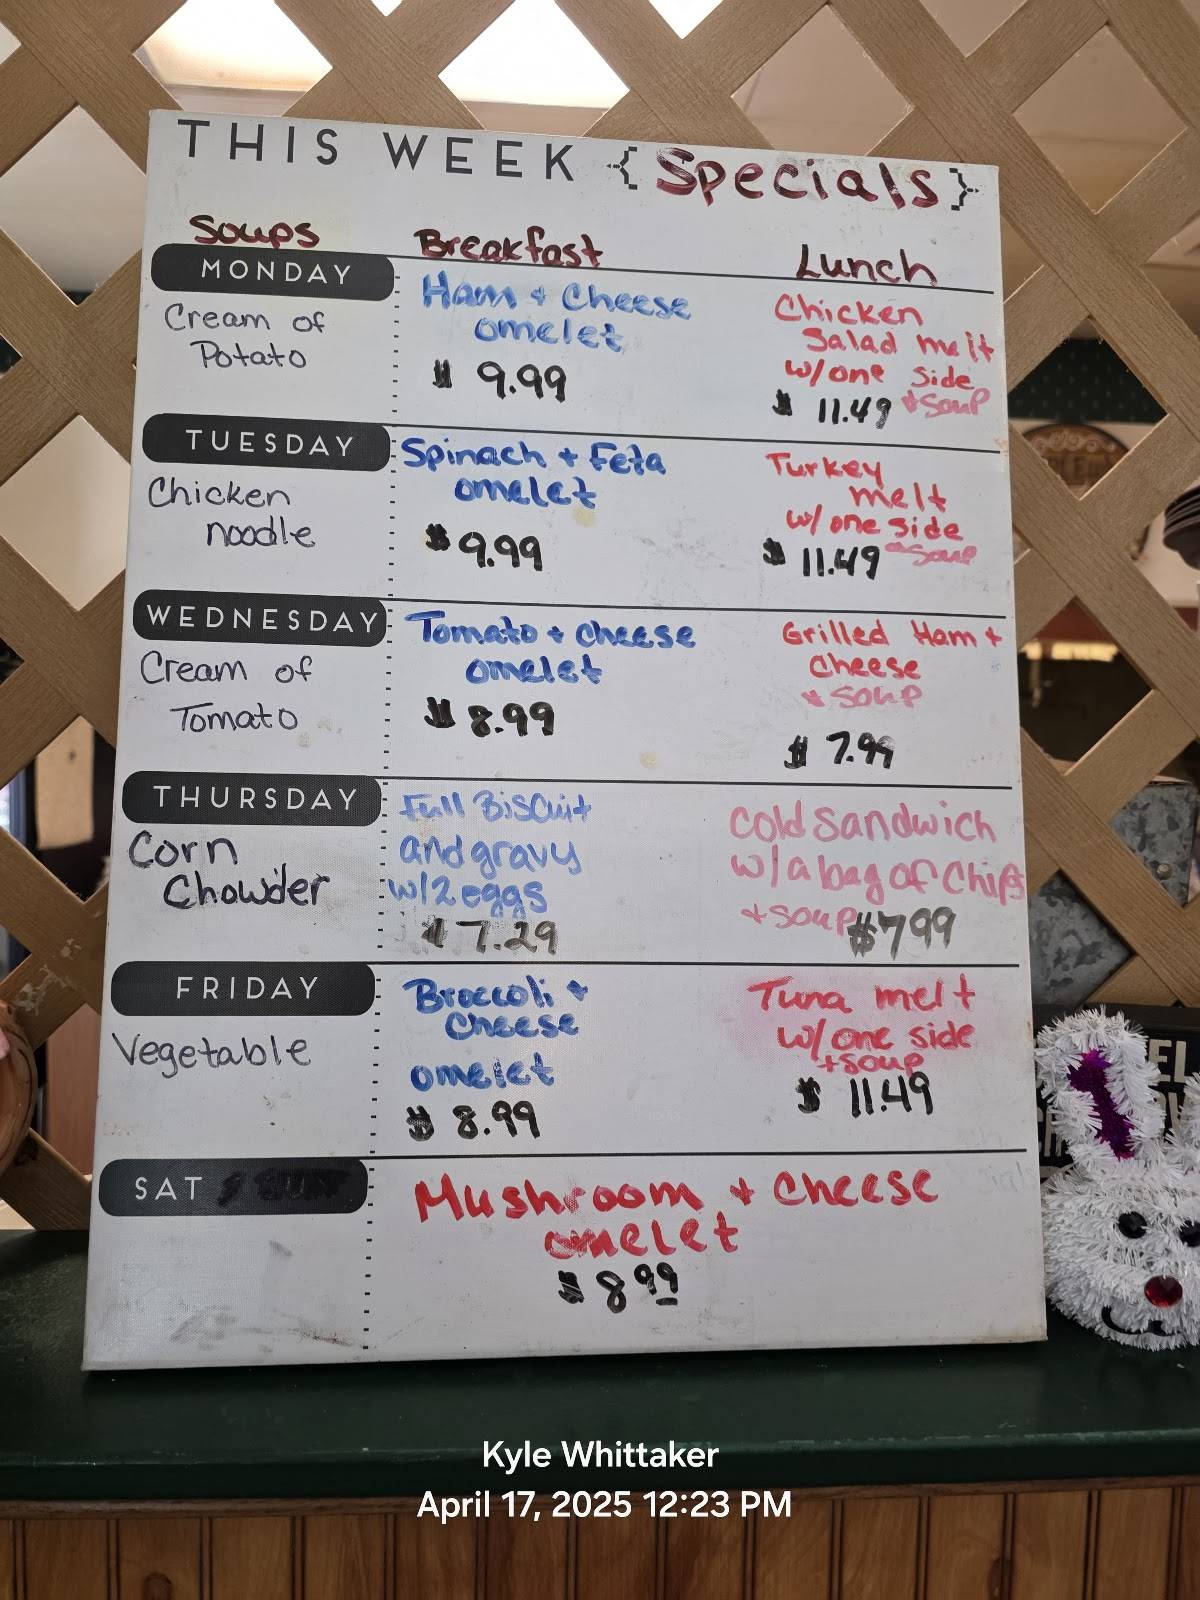 THIS WEEK {Specials}
Soups Breakfast Lunch
MONDAY
Cream of
Potato
Ham + Cheese
omelet
$ 9.99
Chicken
Salad melt
w/one side
+ soup
$ 11.49
TUESDAY
Chicken
noodle
Spinach + Feta
omelet
$ 9.99
Turkey
melt
w/ one side
+ soup
$ 11.49
WEDNESDAY
Cream of
Tomato
Tomato + cheese
omelet
$ 8.99
Grilled Ham +
Cheese
+ soup
$ 7.99
THURSDAY
Corn
Chowder
Full Biscuit
and gravy
w/2 eggs
$ 7.29
Cold Sandwich
w/a bag of Chips
+ soup $7.99
FRIDAY
Vegetable
Broccoli +
Cheese
omelet
$ 8.99
Tuna melt
w/one side
+ soup
$ 11.49
SAT
Mushroom + cheese
omelet
$ 8.99
Kyle Whittaker
April 17, 2025 12:23 PM